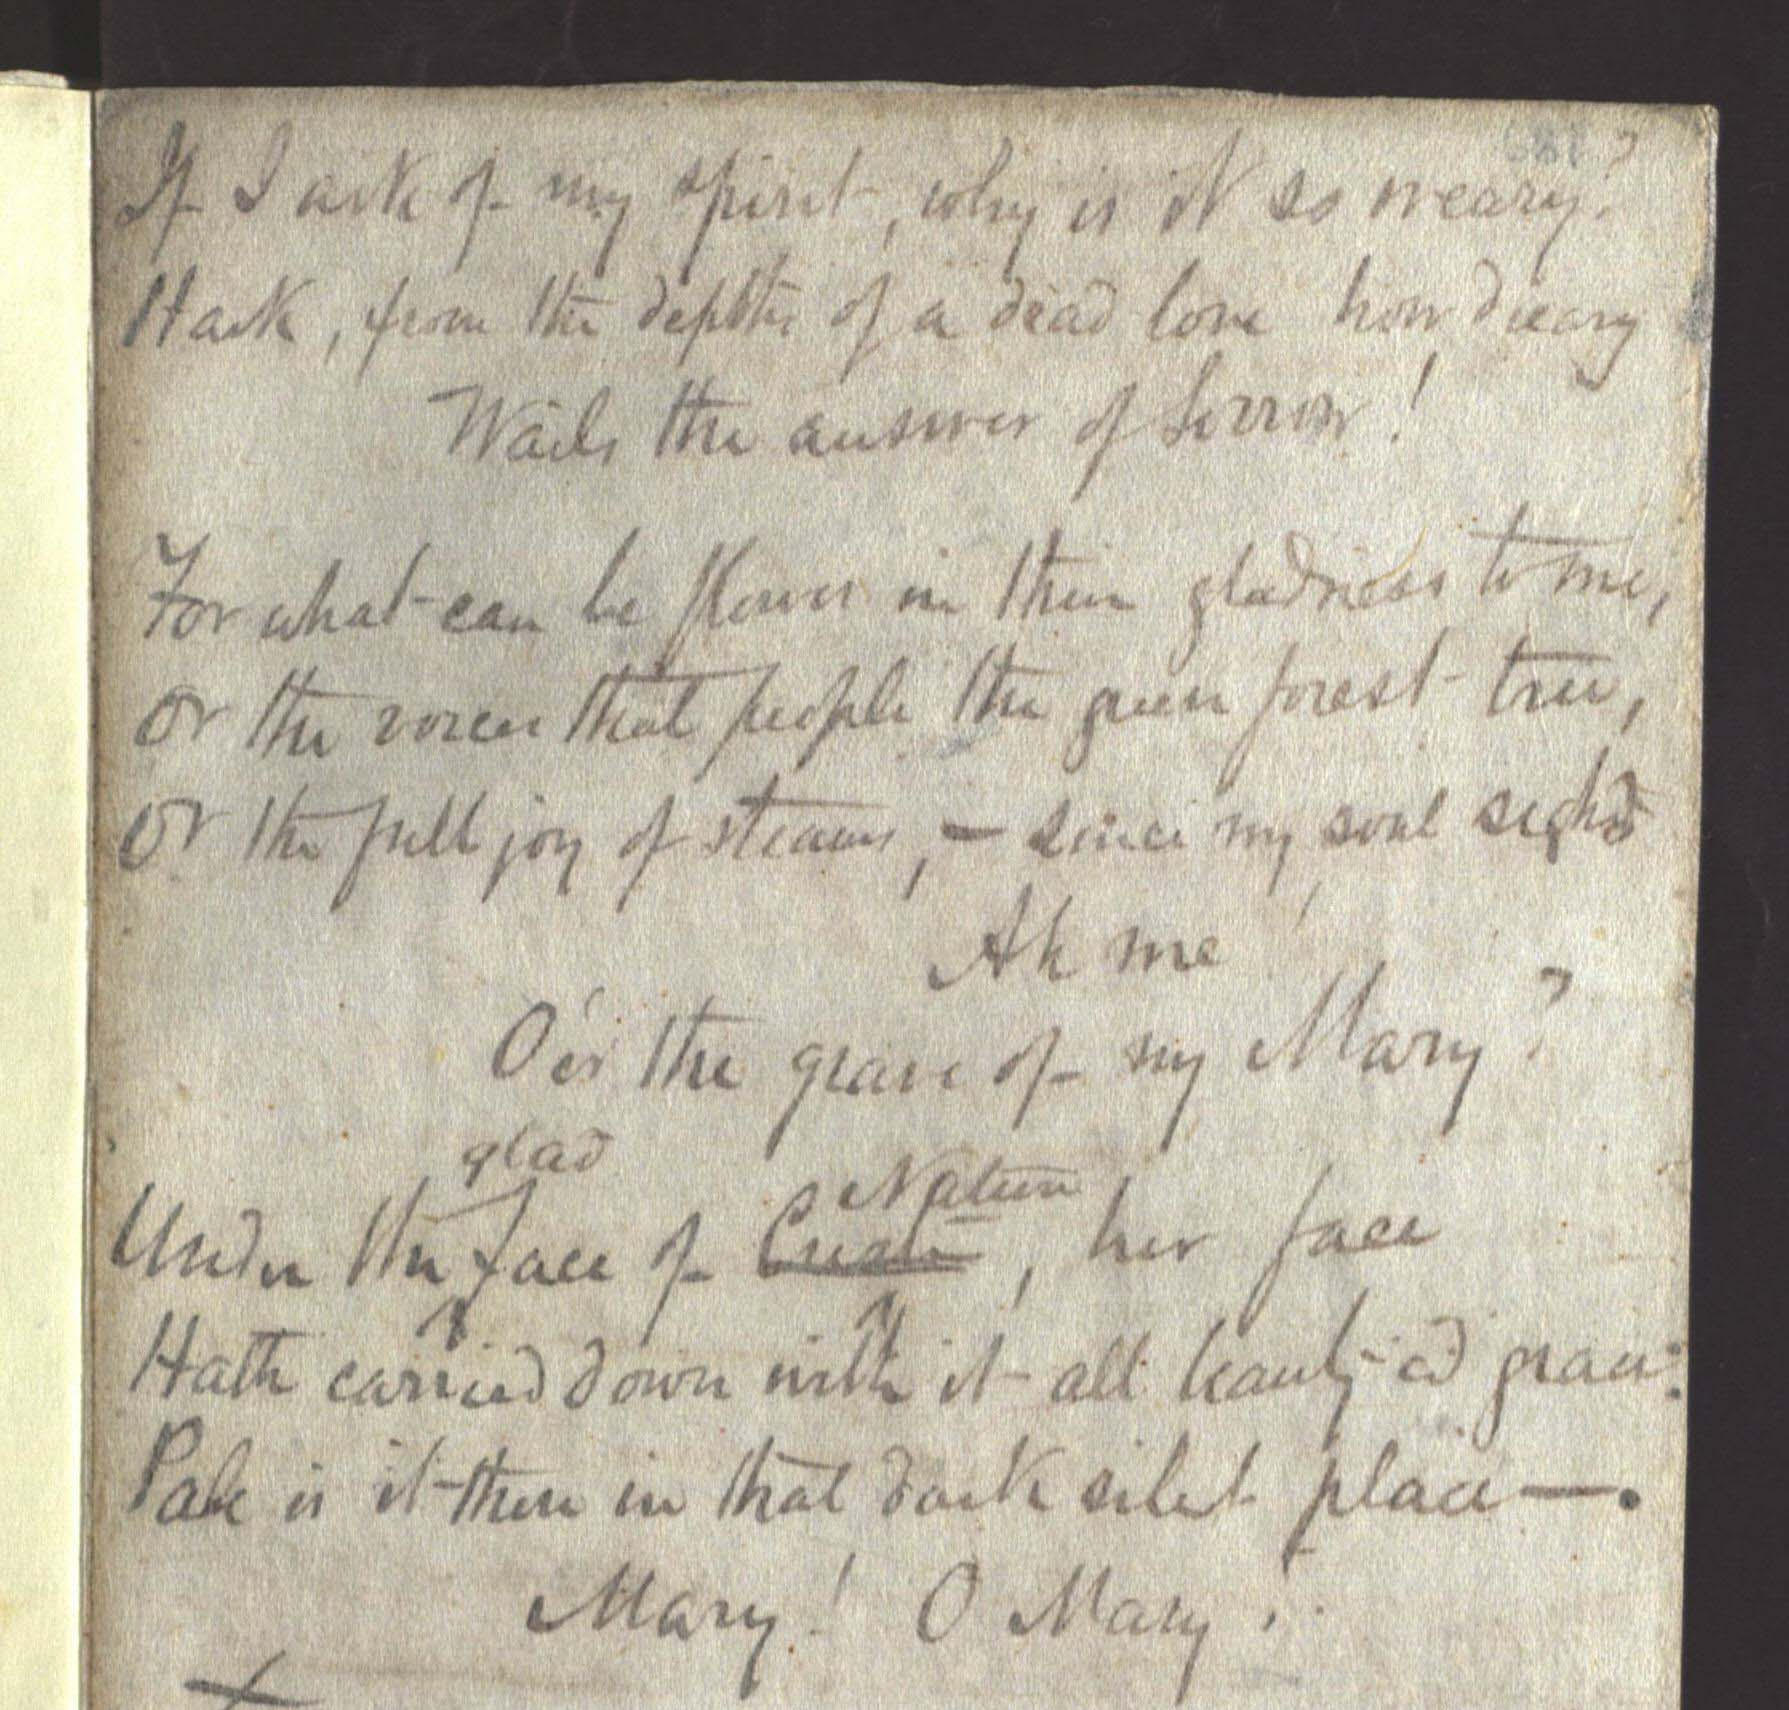 If I ask of my spirit, why is it so weary?
Hark, from the depths of a dead love how dreary
Wails the answer of Sorrow!
For what can be flowers in their gladness to me,
Or the voices that people the green forest tree,
Or the full joy of streams, — since my soul sighs
Ah me
O'er the grave of my Mary?
glad
Nature
Under the face of Creati, her face
Hath carried down with it all beauty & grace:
Pale is it there in that dark silent place —.
Mary! O Mary!